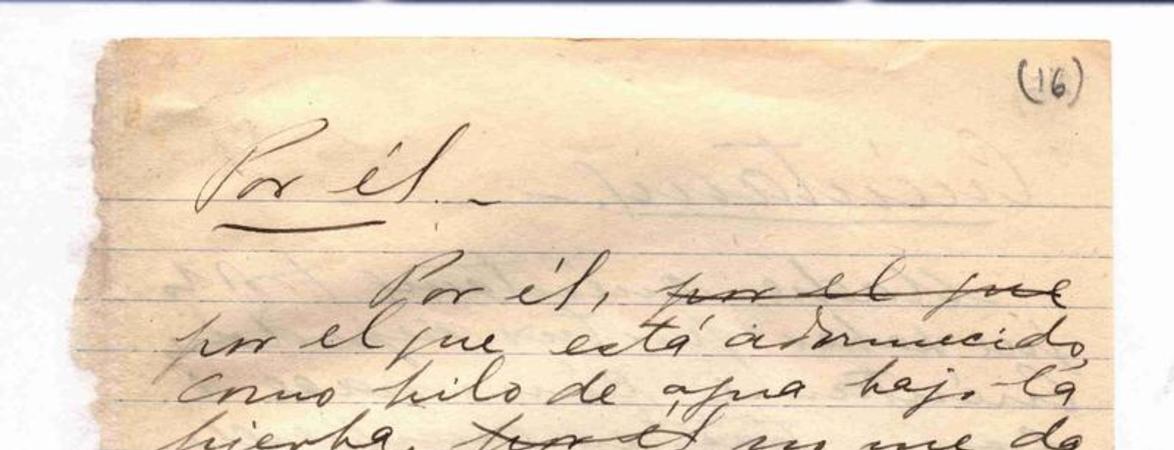 (16)
Por él. -
Por él, por el que
por el que está adormecido,
como hilo de agua bajo la
hierba, por él no me da